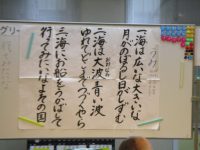 一 海は広いな 大きいな
月がのぼるし 日がしずむ
二 海は大波 青い波
ゆれてどこまでつづくやら
三 海にお船をうかばして
行ってみたいな よその国